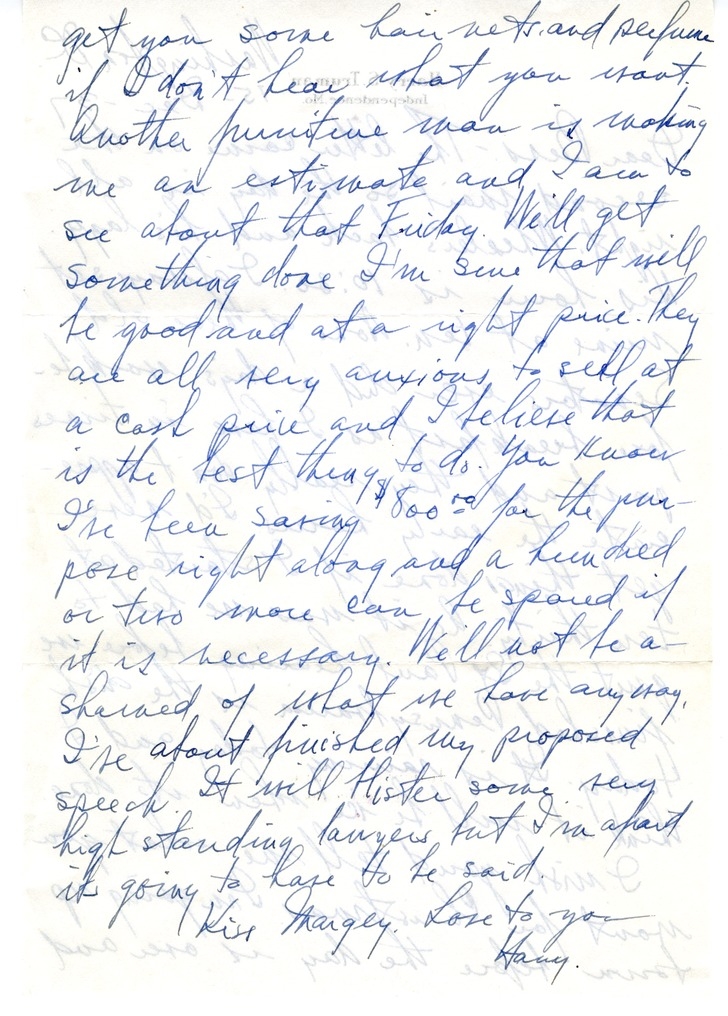 get you some hair nets and perfume
if I don't hear what you want.
Another furniture man is making
me an estimate and I am to
see about that Friday. We'll get
something done I'm sure that will
be good and at a right price. They
are all very anxious to sell at
a cash price and I believe that
is the best thing to do. You know
I've been saving $800 00 for the pur-
pose right along and a hundred
or two more can be spared if
it is necessary. We'll not be a-
shamed of what we have anyway.
I've about finished my proposed
speech. It will blister some very
high standing lawyers but I'm afraid
its going to have to be said.
Kiss Margey. Love to you
Harry.